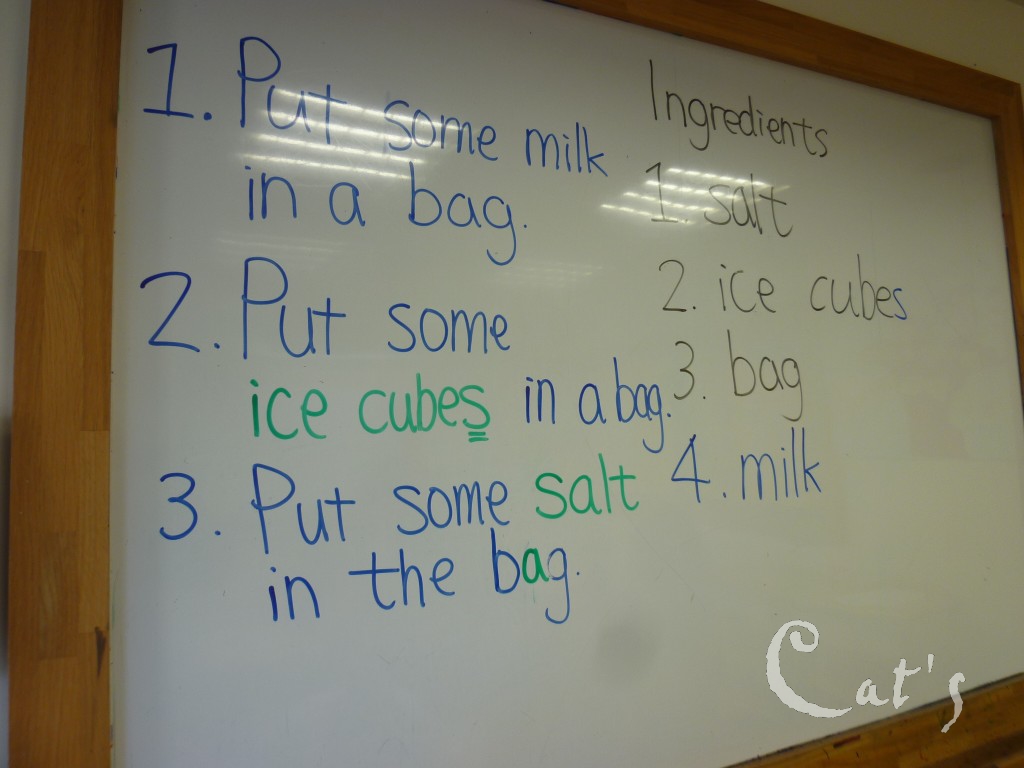 1. Put some milk
in a bag.
2. Put some
ice cubes in a bag.
3. Put some salt
in the bag.
Ingredients
1. salt
2. ice cubes
3. bag
4. milk
Cat's